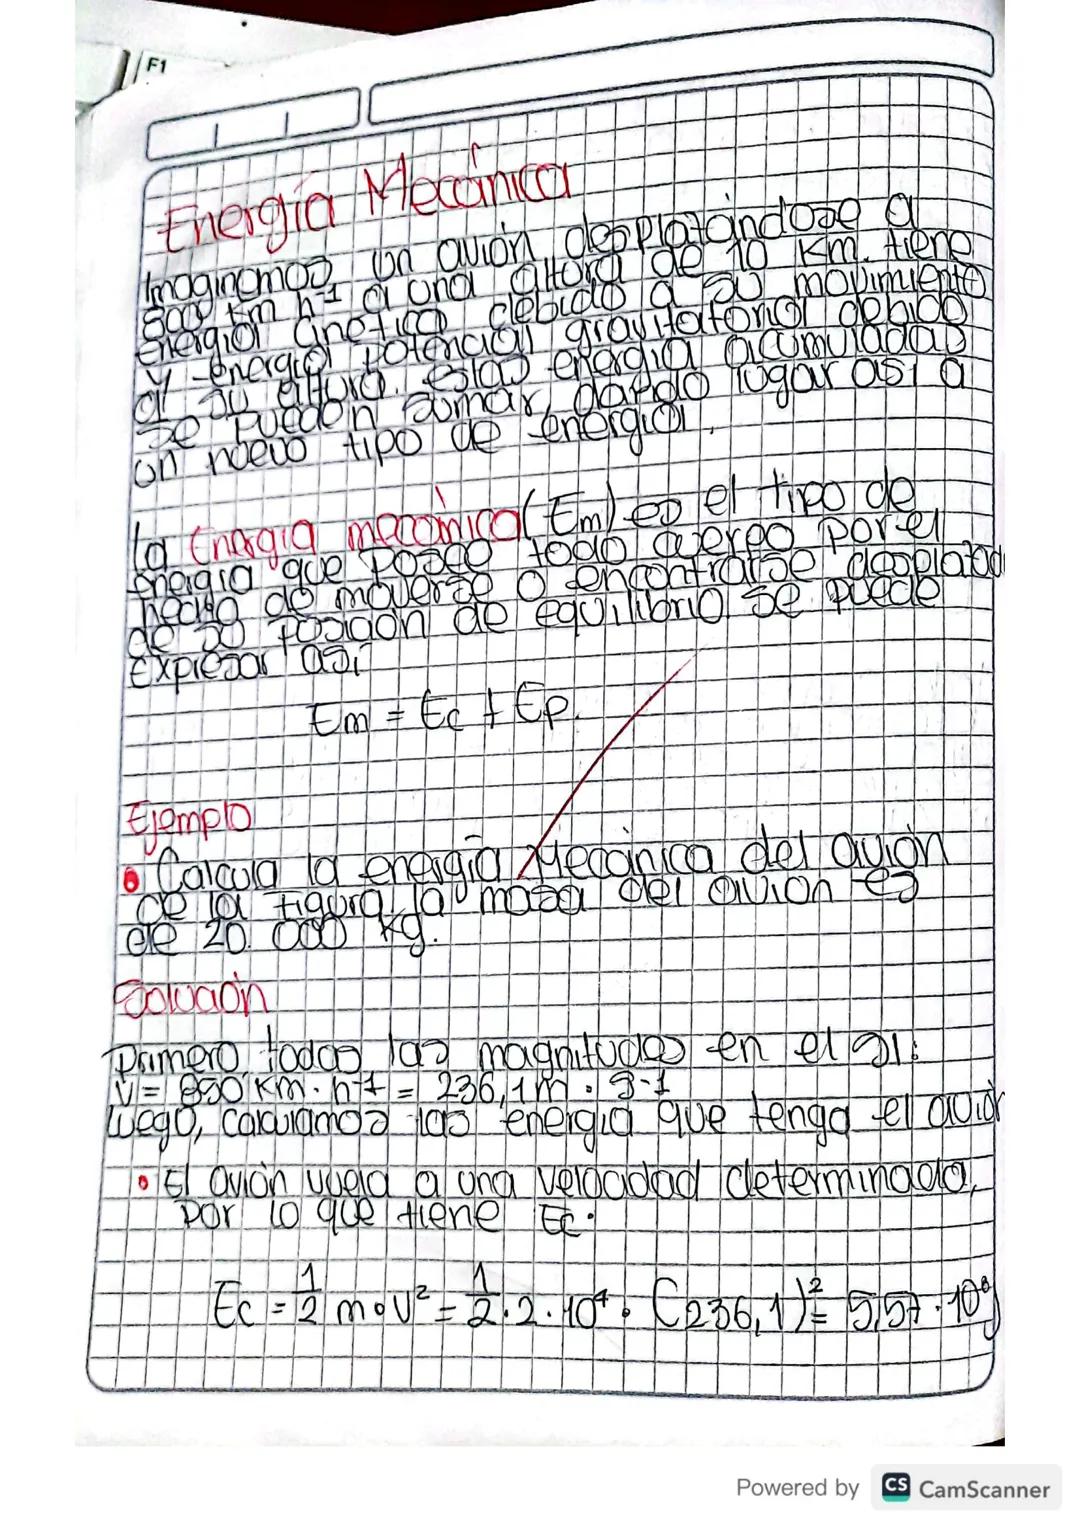 F1
Energía Mecánica
Imaginemos un avión desplazándose a
km h⁻¹ a una altura de 10 km. tiene
energía cinética debido a su movimiento
y energía potencial gravitatoria debido
a su altura. estas energía acumuladas
se pueden sumar, dando lugar así a
un nuevo tipo de energía.
la Energia mecánica (Em) es el tipo de
energia que posee todo cuerpo por el
hecho de moverse o encontrarse desplazado
de su posicion de equilibrio se puede
Expresar así
Em = Ec + Ep.
Ejemplo
• Calcula la energía Mecánica del avión
de la figura, la masa del avion es
de 20.000 kg.
Solución
Primero, todas las magnitudes en el SI:
V = 850 km · h⁻¹ = 236,1 m · s⁻¹
Luego, calculamos las energía que tenga el avión
• El avión vuela a una velocidad determinada,
por lo que tiene Ec.
Ec = 1/2 m · v² = 1/2 · 2 · 10⁴ · (236,1)² = 5,57 · 10⁸ J
Powered by CS CamScanner